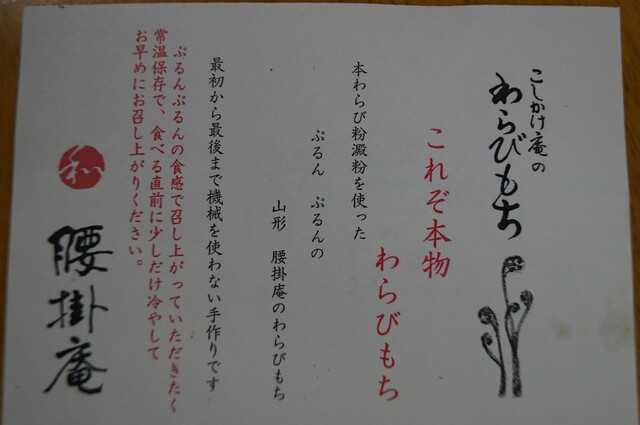 こしかけ庵の
わらびもち
これぞ本物
わらびもち
本わらび粉澱粉を使った
ぷるん ぷるんの
山形 腰掛庵のわらびもち
最初から最後まで機械を使わない手作りです
ぷるんぷるんの食感で召し上がっていただきたく
常温保存で、食べる直前に少しだけ冷やして
お早めにお召し上がりください。
和
腰掛庵